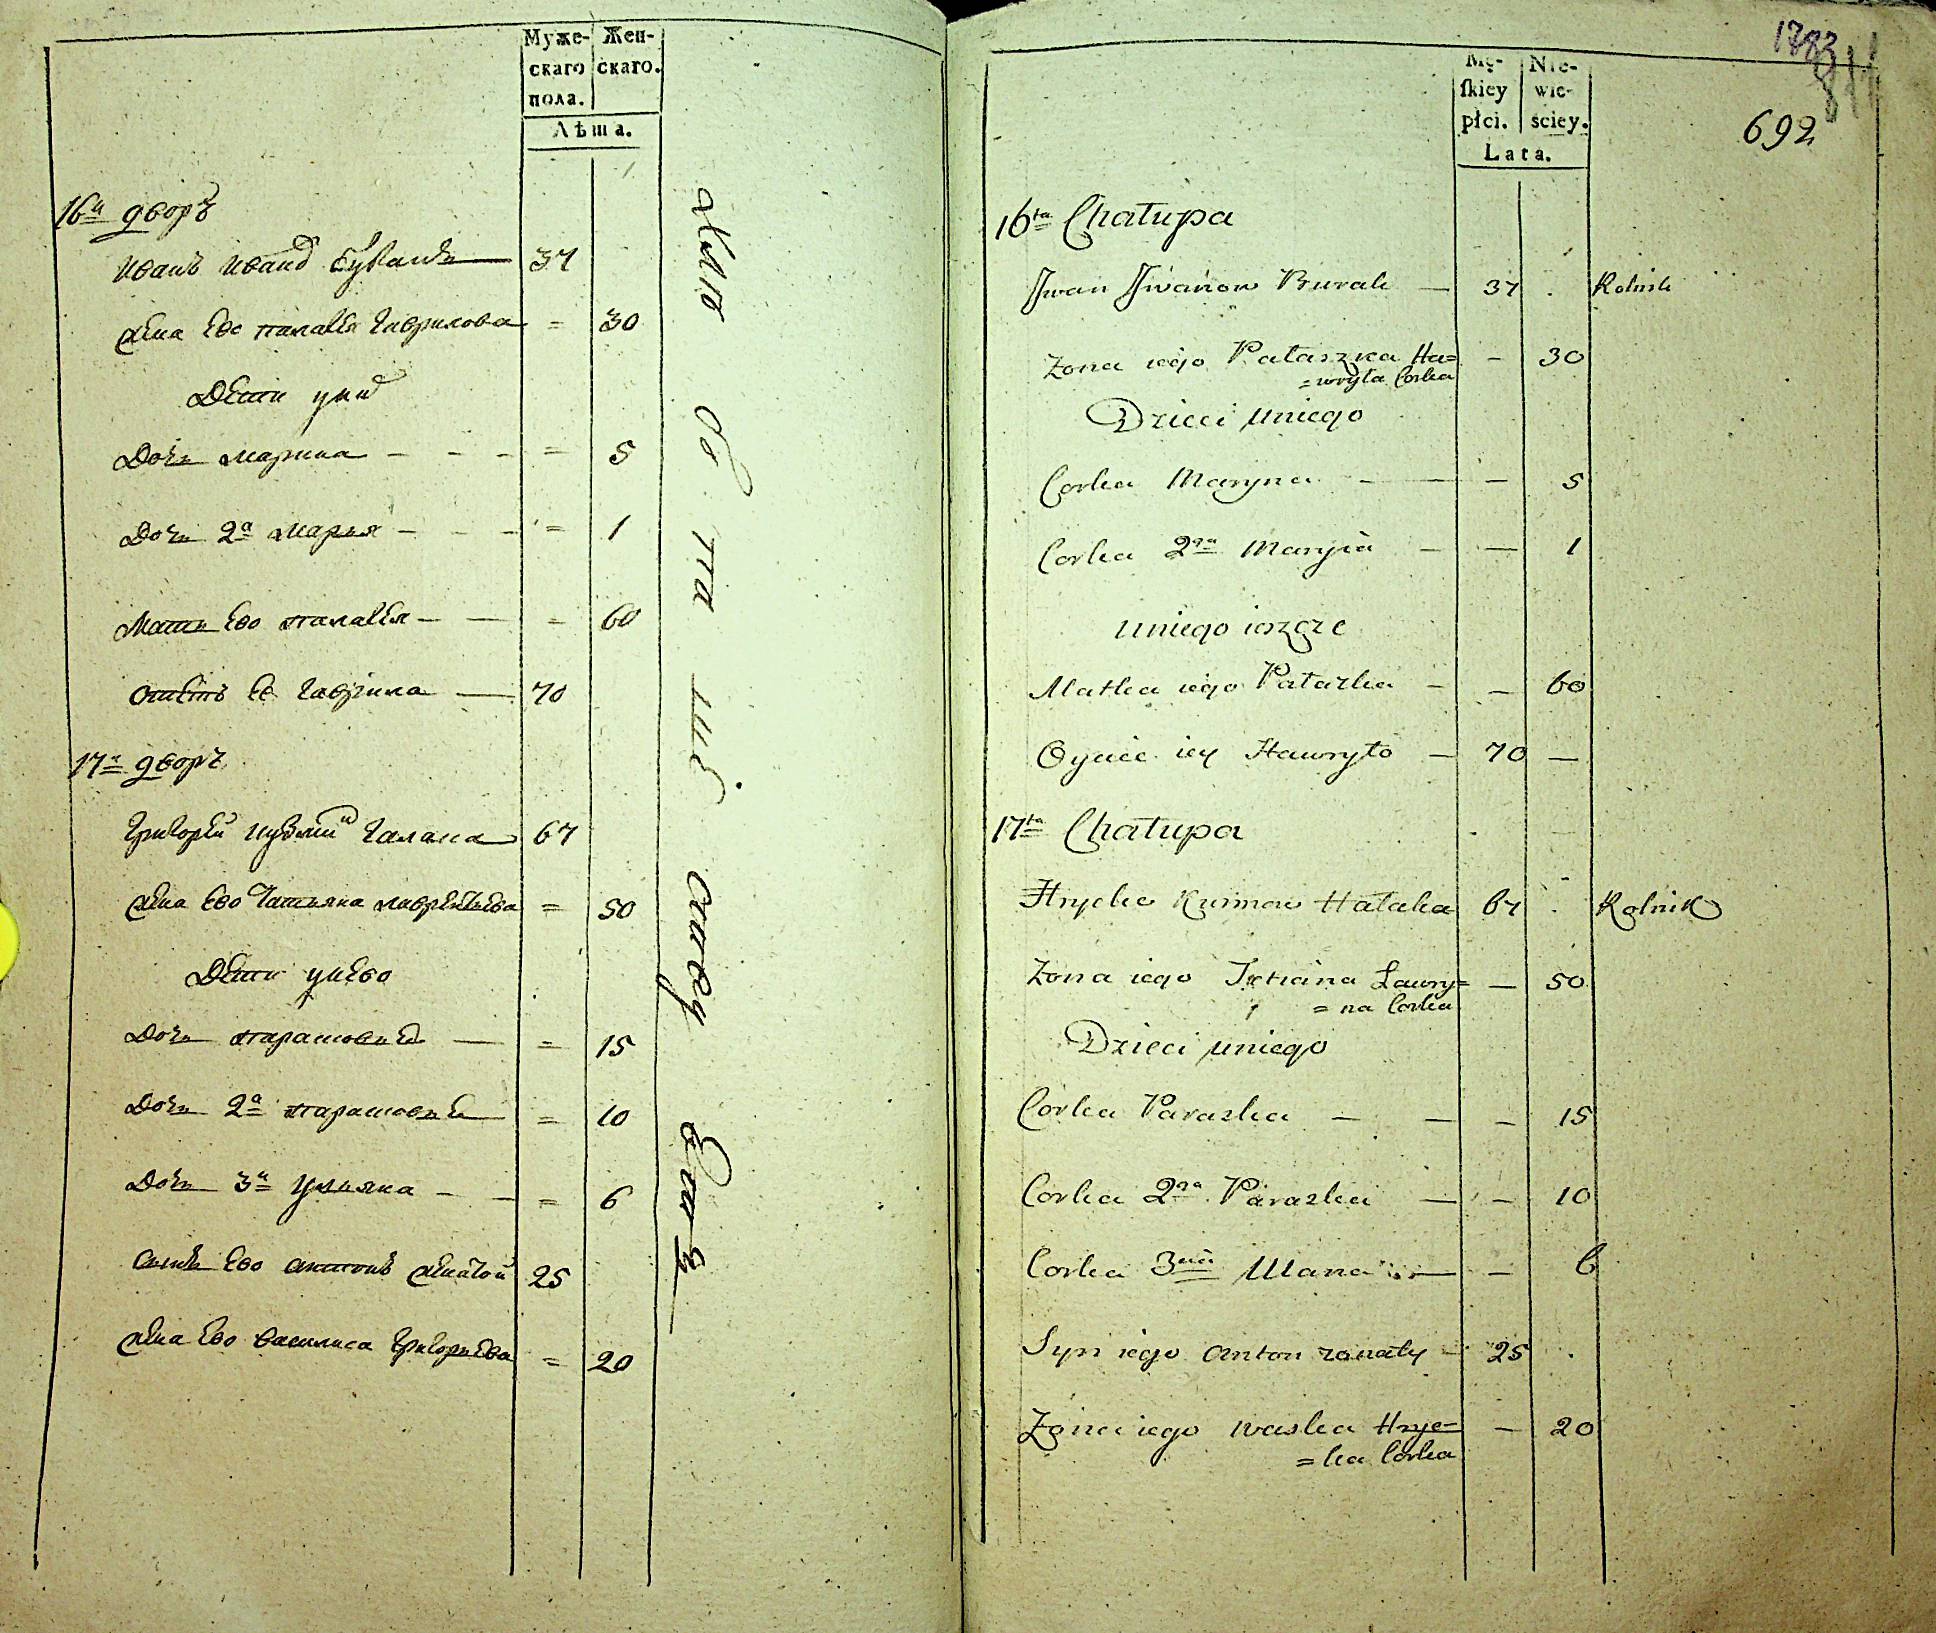 Муже-
скаго
пола.
Жен-
скаго.
Лѣта.
16й дворъ
Иванъ Иванов 37
жена ево палагея гаврилова = 30
Дети у них
Дочь марина - - - = 5
Дочь 2я марья - - - = 1
Мать ево палагея - — = 60
отецъ ее гаврила — 70
17й дворъ
григорей кузмин галака 67
жена ево Татьяна лаврентьева = 50
Дети у него
Дочь парасковия — = 15
Дочь 2я парасковия = 10
Дочь 3я ульяна - - = 6
сынъ ево антонъ женатой 25
жена ево василиса григорьева = 20
1783
692
Mę-
skiey
płci.
Nie-
wie-
ściey.
Lata.
16ta Chałupa
Jwan Jwanow Burak — 37 . Rolnik
Zona iego Pałaszka Ha= — 30
=wryła Corka
Dzieci uniego
Corka Maryna - — — 5
Corka 2ga Maryia — — 1
uniego ieszcze
Matka iego Pałaszka - — 60
Oyciec iey Hawryło — 70 —
17ta Chałupa
Hryćko Kuźmow Hałaka 67 . Rolnik
Zona iego Tetiana Ławry= — 50
=na Corka
Dzieci uniego
Corka Paraska — — — 15
Corka 2ga Paraska — — 10
Corka 3cia Ulana — — 6
Syn iego Anton zonaty - 25 .
Zona iego Waska Hryc= — 20
=ka Corka